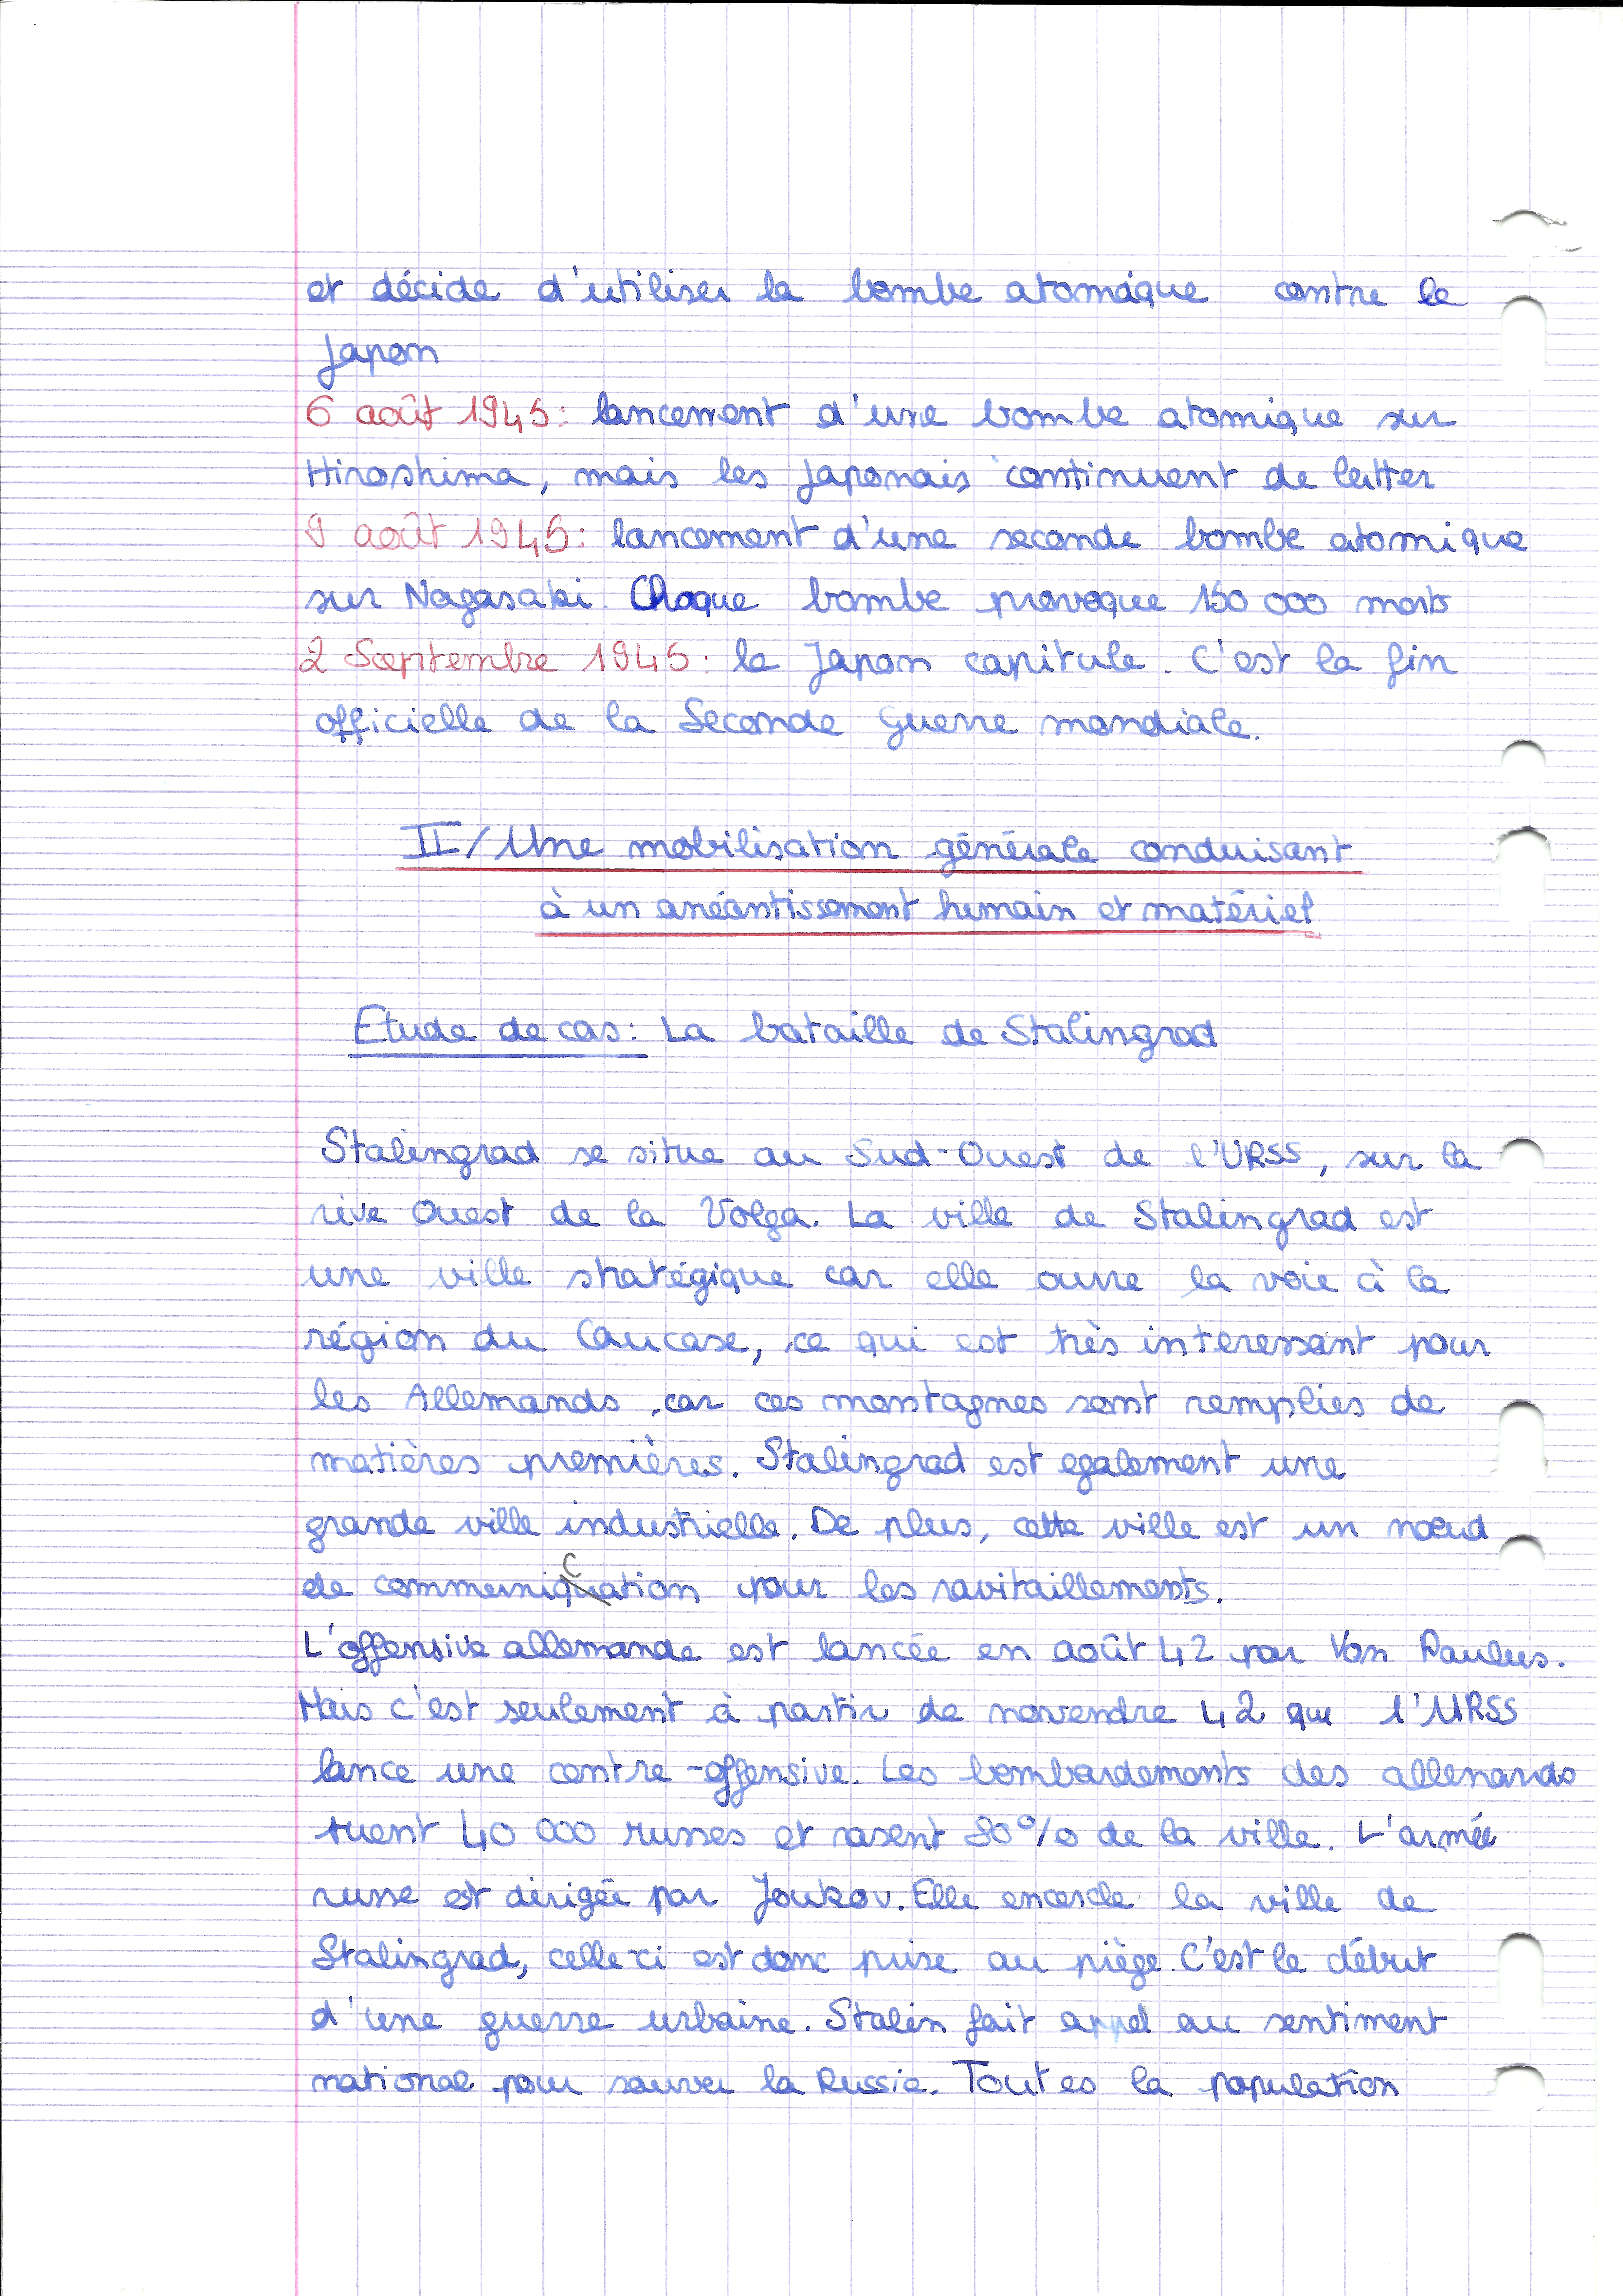 et décide d'utiliser la bombe atomique contre le
Japon
6 août 1945: lancement d'une bombe atomique sur
Hiroshima, mais les Japonais continuent de lutter
9 août 1945: lancement d'une seconde bombe atomique
sur Nagasaki. Chaque bombe provoque 150 000 morts
2 Septembre 1945: le Japon capitule. C'est la fin
officielle de la Seconde Guerre mondiale.
II/ Une mobilisation générale conduisant
à un anéantissement humain et matériel
Etude de cas: La bataille de Stalingrad
Stalingrad se situe au Sud-Ouest de l'URSS, sur la
rive Ouest de la Volga. La ville de Stalingrad est
une ville stratégique car elle ouvre la voie à la
région du Caucase, ce qui est très interessant pour
les Allemands, car ces montagnes sont remplies de
matières premières. Stalingrad est egalement une
grande ville industrielle. De plus, cette ville est un nœud
de communication pour les ravitaillements.
L'offensive allemande est lancée en août 42 par Von Paulus.
Mais c'est seulement à partir de novendre 42 que l'URSS
lance une contre-offensive. Les bombardements des allemands
tuent 40 000 russes et rasent 80% de la ville. L'armée
russe est dirigée par Joukov. Elle encercle la ville de
Stalingrad, celle-ci est donc prise au piège. C'est le début
d'une guerre urbaine. Stalin fait appel au sentiment
national pour sauver la Russie. Toutes la population